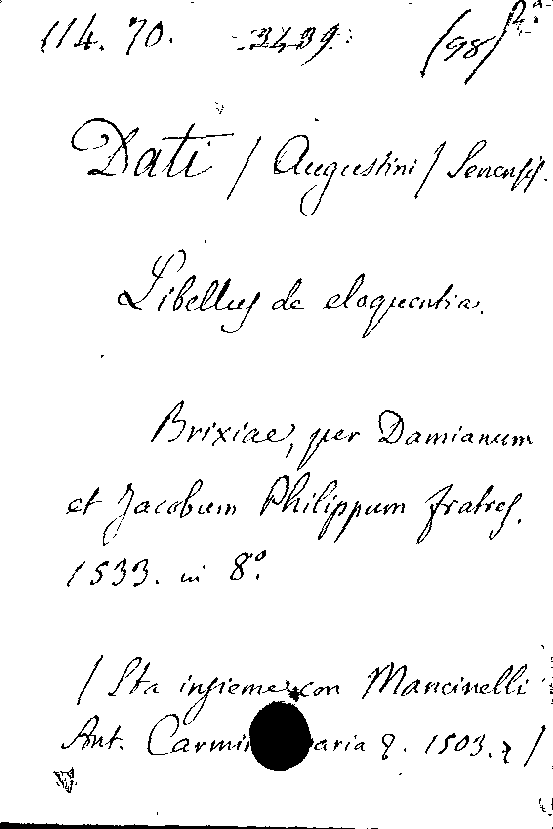 114. 70. 3439. (98) R.ª
Dati / Augustini / Senensis.
Libellus de eloquentia.
Brixiae, per Damianum
et Jacobum Philippum fratres.
1533. in 8.º
/ Sta insieme con Mancinelli
Ant. Carmi aria 1503. /